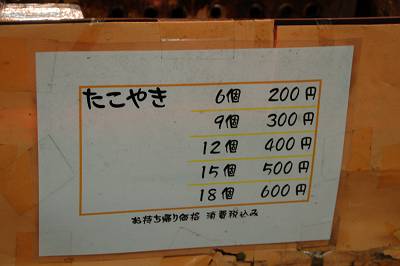 たこやき 6個 200円
9個 300円
12個 400円
15個 500円
18個 600円
お持ち帰り価格 消費税込み